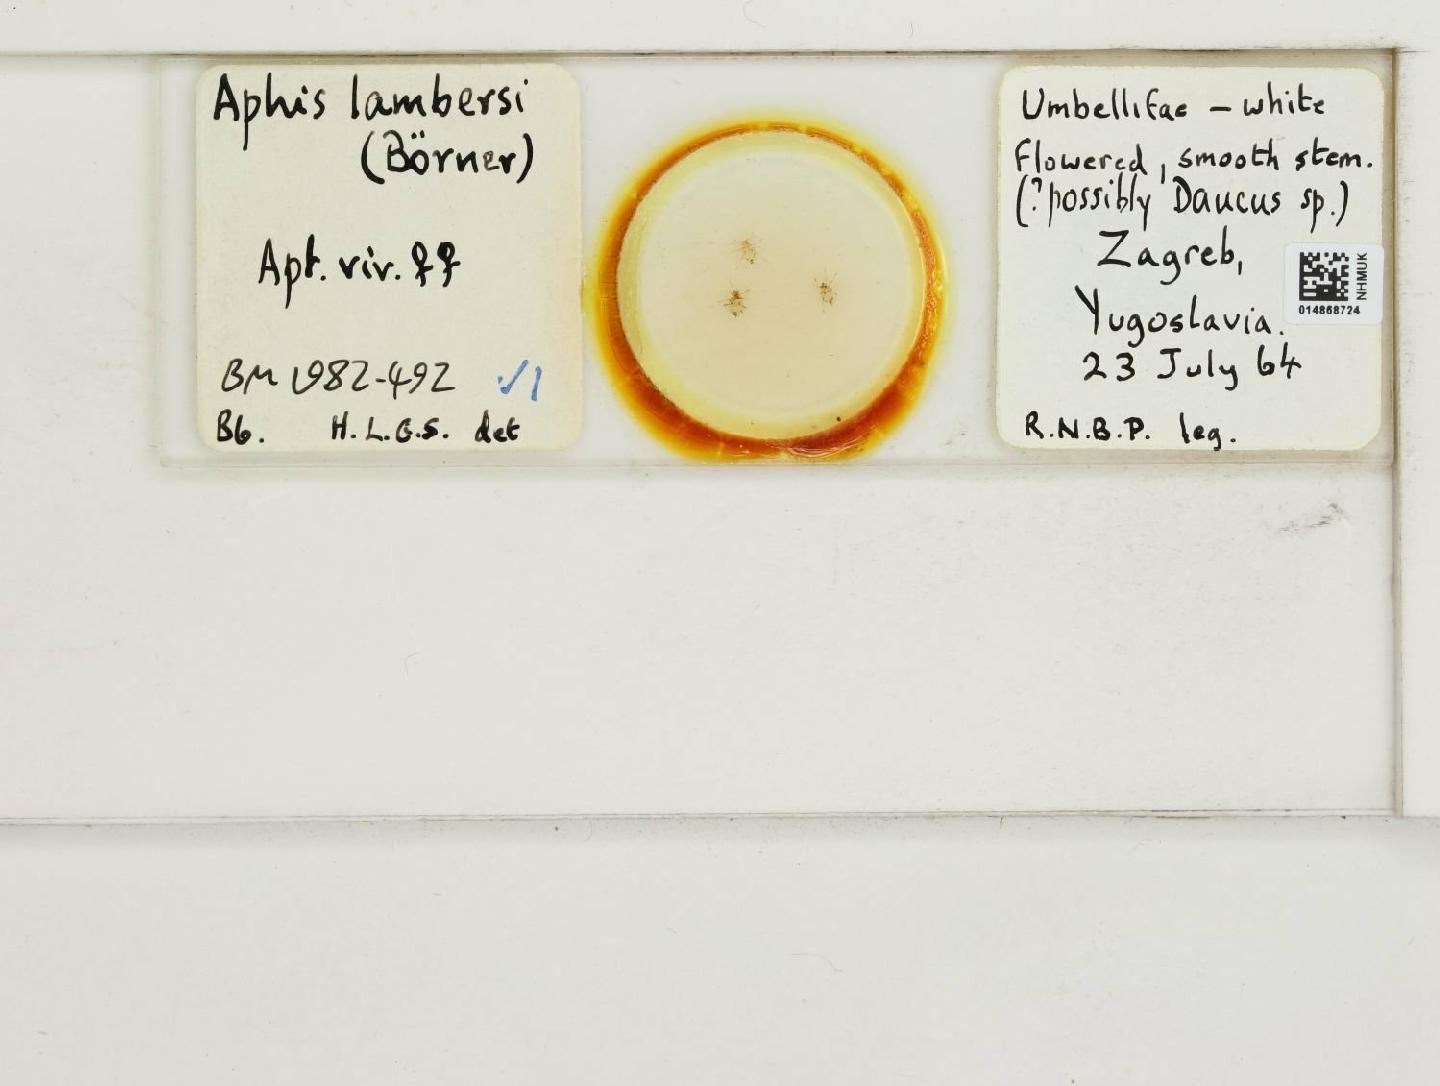 Aphis lambersi
(Börner)
Apt. viv. ♀♀
BM 1982-492 ✓1
B6. H.L.G.S. det
Umbellifae – white
flowered, smooth stem.
(?possibly Daucus sp.)
Zagreb,
Yugoslavia.
23 July 64
R.N.B.P. leg.
NHMUK
014868724